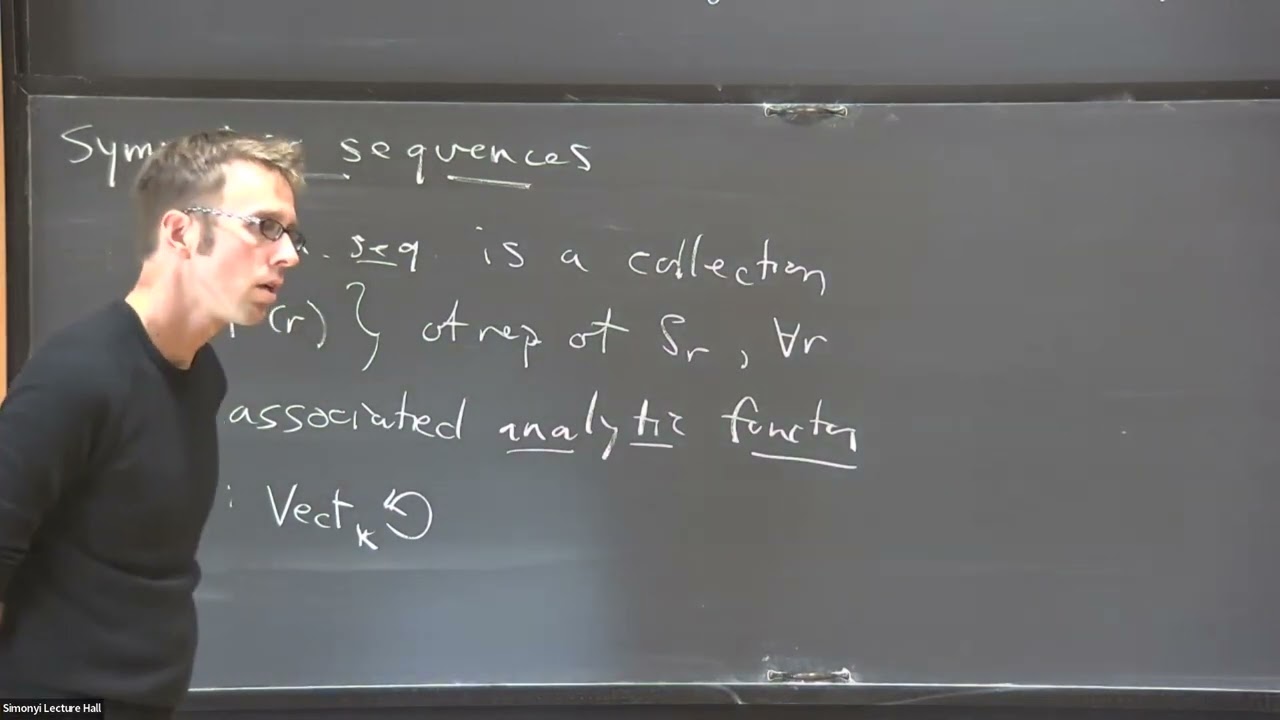 Sym sequences
seq. is a collection
(r) } of rep of Sr, ∀r
associated analytic functor
: Vect_k ↺
Simonyi Lecture Hall